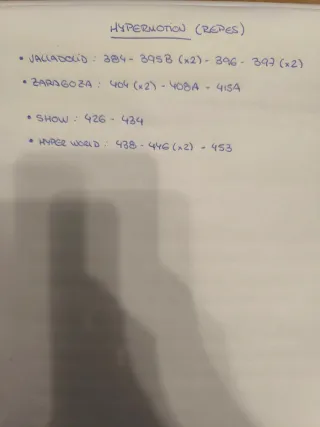 HYPERMOTION (REPES)
• VALLADOLID : 384 - 395B (x2) - 396 - 397 (x2)
• ZARAGOZA : 404 (x2) - 408A - 415A
• SHOW : 426 - 434
• HYPER WORLD : 438 - 446 (x2) - 453